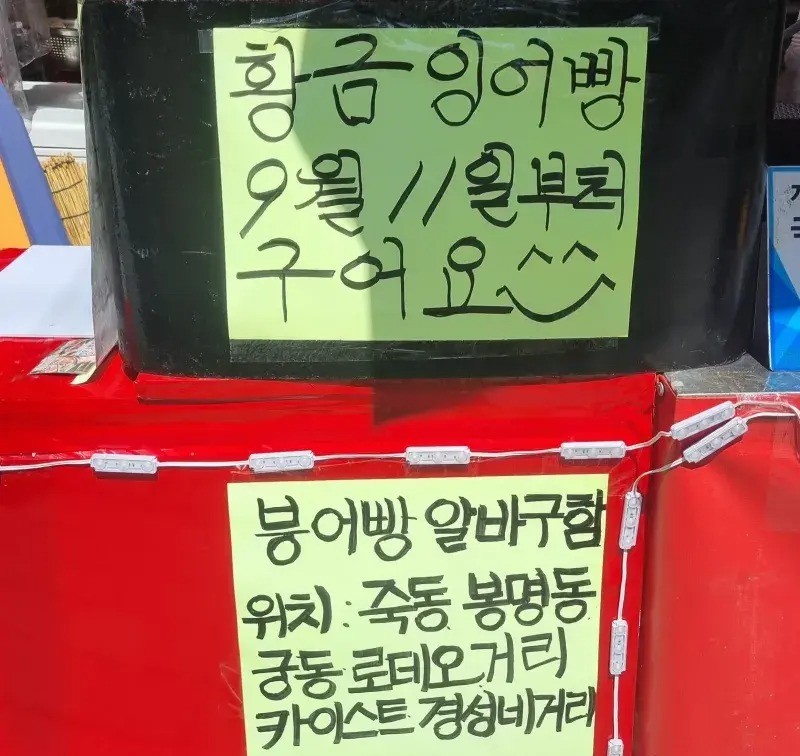 황금잉어빵
9월 11일부터
구어요^^
붕어빵 알바구함
위치: 죽동 봉명동
궁동 로데오거리
카이스트 경성비거리